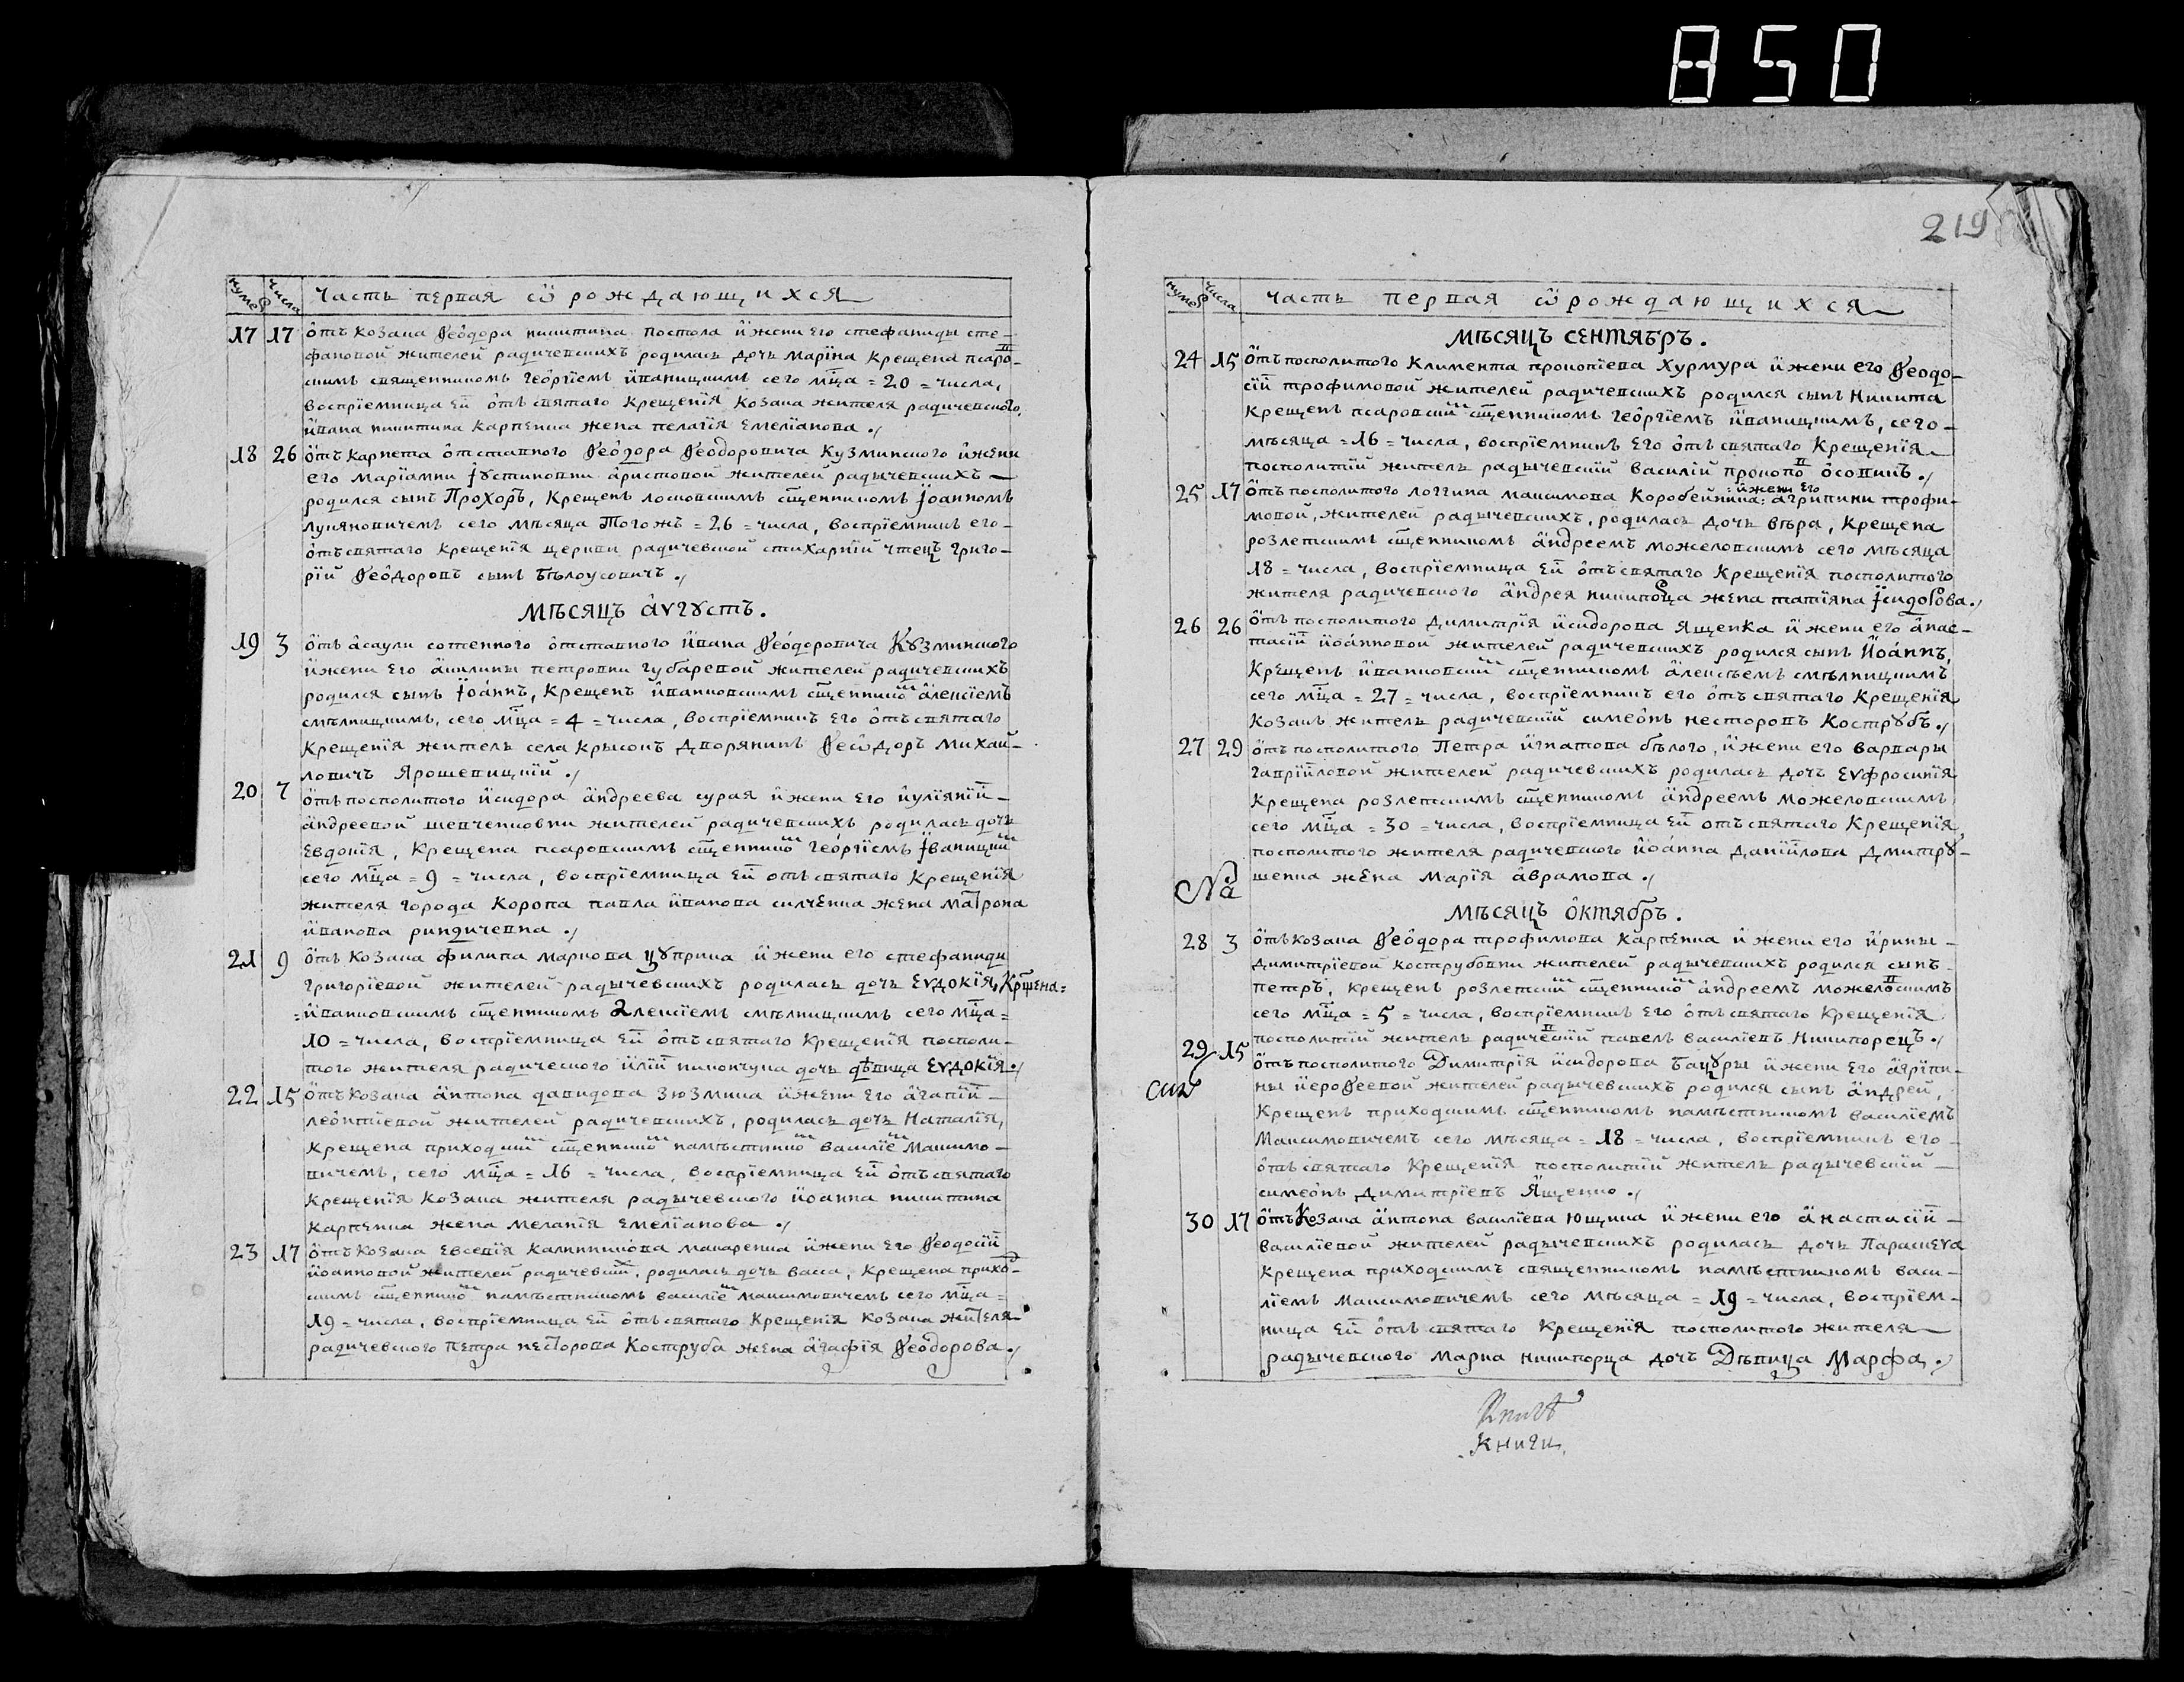 850
219
нумеръ числа часть первая ѿ рождающихся
17 17 отъ козака Ѳеодора никитина постола и жени его стефаниды сте-
фановой жителей радичевскихъ родилась дочь Марина крещена псаро-
скимъ священникомъ георгіемъ иваницкимъ сего мца = 20 = числа,
воспріемница ей отъ святаго крещенія козака жителя радичевского,
ивана никитина карпенка жена пелагія емеліанова ./
18 26 отъ карнета отставного Ѳеодора Ѳеодоровича кузминского и жени
его маріамни іустиновни аристовой жителей радычевскихъ —
родился сынъ Прохоръ, крещенъ лосковскимъ сщенникомъ Іоанномъ
лукяновичемъ сего мѣсяца тогожъ = 26 = числа, воспріемникъ его -
отъ святаго крещенія церкви радичевской стихарній чтецъ григо-
рій Ѳеодоровъ сынъ бѣлоусовичъ ./
мѣсяцъ аѵгустъ.
19 3 отъ асаули сотенного отставного ивана Ѳеодоровича Кузминского
и жени его акилины петровни губаревой жителей радичевскихъ
родился сынъ Іоаннъ, крещенъ ивановскимъ сщенникомъ алексіемъ
смѣлницкимъ, сего мца = 4 = числа, воспріемникъ его отъ святаго
крещенія житель села крысокъ дворянинъ Ѳеѡдоръ михай-
ловичъ ярошевицкій ./
20 7 отъ посполитого исидора андреева сурая и жени его иуліяніи -
андреевой шевченковни жителей радичевскихъ родилась дочь
Евдокія, крещена псаровскимъ сщенником георгіемъ Іваницким
сего мца = 9 = числа, воспріемница ей отъ святаго крещенія
жителя города коропа павла иванова силченка жена матрона
иванова риндичевна ./
21 9 отъ козака филипа маркова цуприка и жени его стефаниди
григоріевой жителей радычевскихъ родилась дочь Еѵдокія, крщена=
=ивановскимъ сщенникомъ алексіемъ смѣлницкимъ сего мца=
10 = числа, воспріемница ей отъ святаго крещенія посполи-
того жителя радичевского иліи никончука дочь дѣвица Еѵдокія ./
22 15 отъ козака антона давидова зюзмика и жени его агапіи —
леонтіевой жителей радичевскихъ, родилась дочь Наталія,
крещена приходским сщенником намѣстником василіем Максимо-
вичемъ, сего мца = 16 = числа, воспріемница ей отъ святаго
крещенія козака жителя радычевского иоанна никитина
карпенка жена меланія емеліанова ./
23 17 отъ козака Евсевія калинникова макаренка и жени его Ѳеодосіи
иоанновой жителей радичевских, родилась дочь васса, крещена прихо-
скимъ сщенником намѣстникомъ василіем максимовичемъ сего мца=
19 = числа, воспріемница ей отъ святаго крещенія козака жителя
радичевского петра несторова коструба жена агафія Ѳеодорова ./
нумеръ числа часть первая ѿ рождающихся
мѣсяцъ сентябръ.
24 15 отъ посполитого климента прокопіева хурмура и жени его Ѳеодо-
сіи трофимовой жителей радичевскихъ родился сынъ Никита
крещенъ псаровским сщенникомъ георгіемъ иваницкимъ, сего -
мѣсяца = 16 = числа, воспріемникъ его отъ святаго крещенія
посполитій житель радычевскій василій прокопов осовикъ ./
25 17 отъ посполитого логгина максимова коробейника: и жени его агрипини трофи-
мовой, жителей радычевскихъ, родилась дочь вѣра, крещена
розлетскимъ сщенникомъ андреемъ можеловскимъ сего мѣсяца
18 = числа, воспріемница ей отъ святаго крещенія посполитого
жителя радичевского андрея никипорца жена татіяна Ісидорова ./
26 26 отъ посполитого димитрія исидорова ященка и жени его анас-
тасіи иоанновой жителей радичевскихъ родился сынъ Иоаннъ,
крещенъ ивановским сщенникомъ алексѣемъ смѣлницкимъ
сего мца = 27 = числа, воспріемникъ его отъ святаго крещенія
козакъ житель радичевскій симеонъ несторовъ кострубъ ./
27 29 отъ посполитого Петра игнатова бѣлого, и жени его варвары
гавріиловой жителей радичевскихъ родилась дочь Еѵфросинія
крещена розлетскимъ сщенникомъ андреемъ можеловскимъ
сего мца = 30 = числа, воспріемница ей отъ святаго крещенія,
посполитого жителя радичевского иоанна даніилова дмитру-
шенка жена марія аврамова ./
мѣсяцъ октябръ.
28 3 отъ козака Ѳеодора трофимова карпенка и жени его ирины -
димитріевой кострубовни жителей радычевскихъ родился сынъ -
петръ, крещенъ розлетским сщенником андреемъ можеловскимъ
сего мца = 5 = числа, воспріемникъ его отъ святаго крещенія
посполитій житель радичевскій павелъ василіевъ Никипорецъ ./
29 15 отъ посполитого Димитрія исидорова бацуры и жени его агріпи-
ны иероѲеевой жителей радычевскихъ родился сынъ андрей,
крещенъ приходскимъ сщенникомъ намѣстникомъ василіемъ
Максимовичемъ сего мѣсяца = 18 = числа, воспріемникъ его -
отъ святаго крещенія посполитій житель радычевскій —
симеонъ димитріевъ Ященко ./
30 17 отъ козака антона василіева ющика и жени его анастасіи -
василіевой жителей радычевскихъ родилась дочь Параскеѵа
крещена приходскимъ священникомъ намѣстникомъ васи-
ліемъ Максимовичемъ сего мѣсяца = 19 = числа, воспріем-
ница ей отъ святаго крещенія посполитого жителя
радычевского марка никипорца дочь Дѣвица Марфа ./
книги